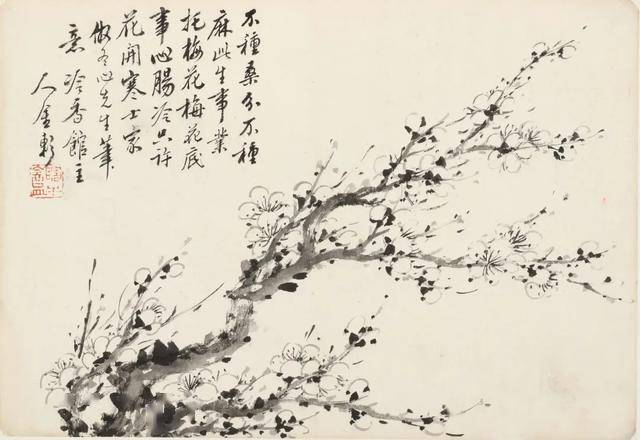 不種桑兮不種
麻此生事業
托梅花梅花底
事心腸冷只許
花開寒士家
倣冬心先生筆
意 冷香館主
人金